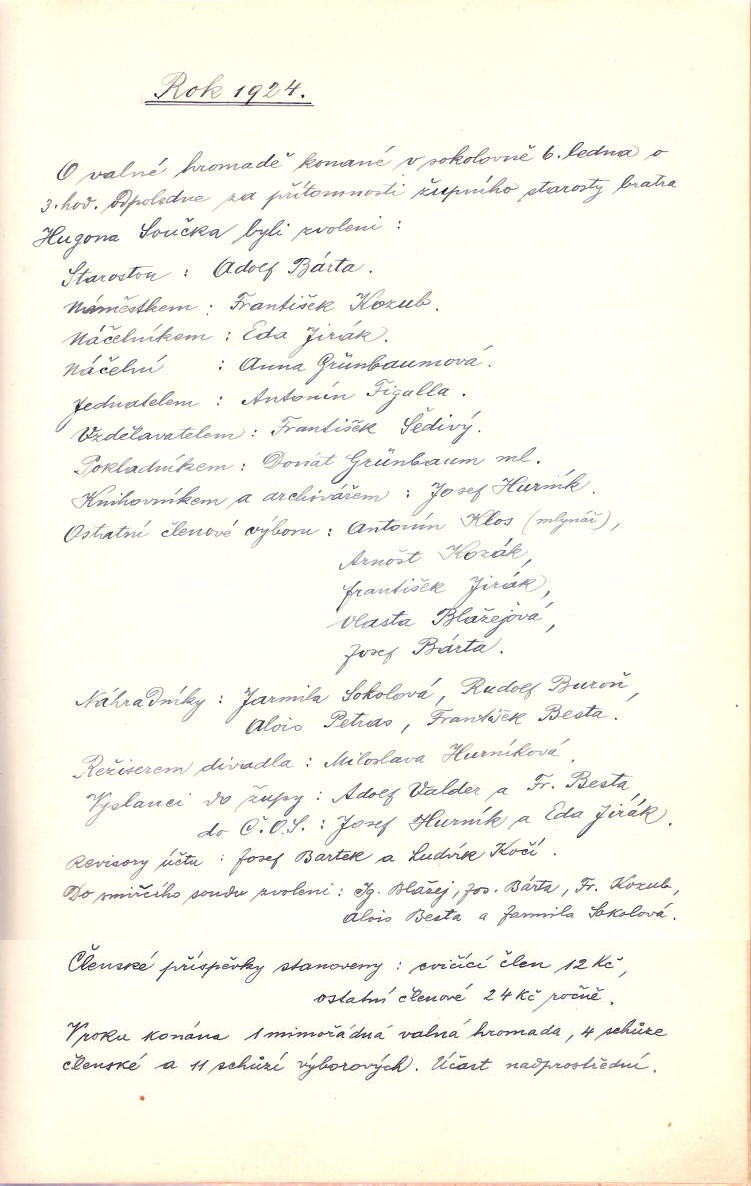 Rok 1924.
O valné hromadě konané v sokolovně 6. ledna o
3. hod. odpoledne za přítomnosti župního starosty bratra
Hugona Součka byli zvoleni :
Starostou : Adolf Bárta.
Náměstkem : František Kozub.
Náčelníkem : Eda Jirák.
Náčelní : Anna Grünbaumová.
Jednatelem : Antonín Figalla.
Vzdělavatelem : František Šedivý.
Pokladníkem : Donát Grünbaum ml.
Knihovníkem a archivářem : Josef Hurník.
Ostatní členové výboru : Antonín Klos (mlynář),
Arnošt Kozák,
František Jirák,
Vlasta Blažejová,
Josef Bárta.
Náhradníky : Jarmila Sokolová, Rudolf Buroň,
Alois Petras, František Besta.
Režiserem divadla : Miloslava Hurníková.
Vyslanci do župy : Adolf Valder a Fr. Besta,
do Č.O.S. : Josef Hurník a Eda Jirák.
Revisory účtu : Josef Bartek a Ludvík Kočí.
Do smírčího soudu zvoleni : Ig. Blažej, Jos. Bárta, Fr. Kozub,
Alois Besta a Jarmila Sokolová.
Členské příspěvky stanoveny : cvičící člen 12 Kč,
ostatní členové 24 Kč ročně.
V roku konána 1 mimořádná valná hromada, 4 schůze
členské a 11 schůzí výborových. Účast nadprostřední.